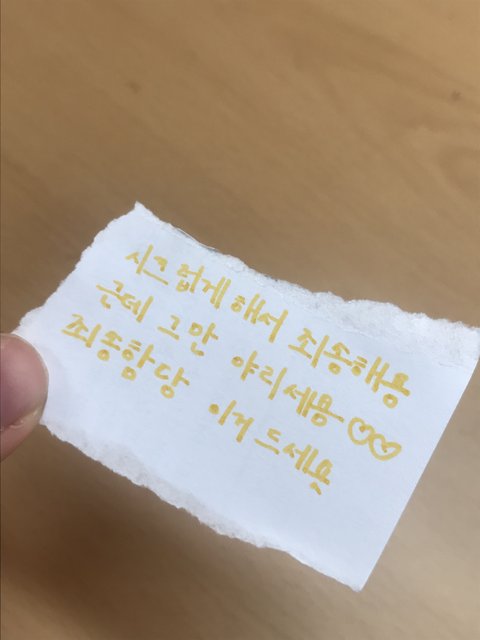 시끄럽게 해서 죄송해용
근데 그만 야리세용♡♡
죄송함당 이거 드세욧